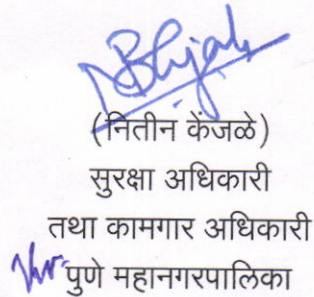 (नितीन केंजळे)
सुरक्षा अधिकारी
तथा कामगार अधिकारी
पुणे महानगरपालिका